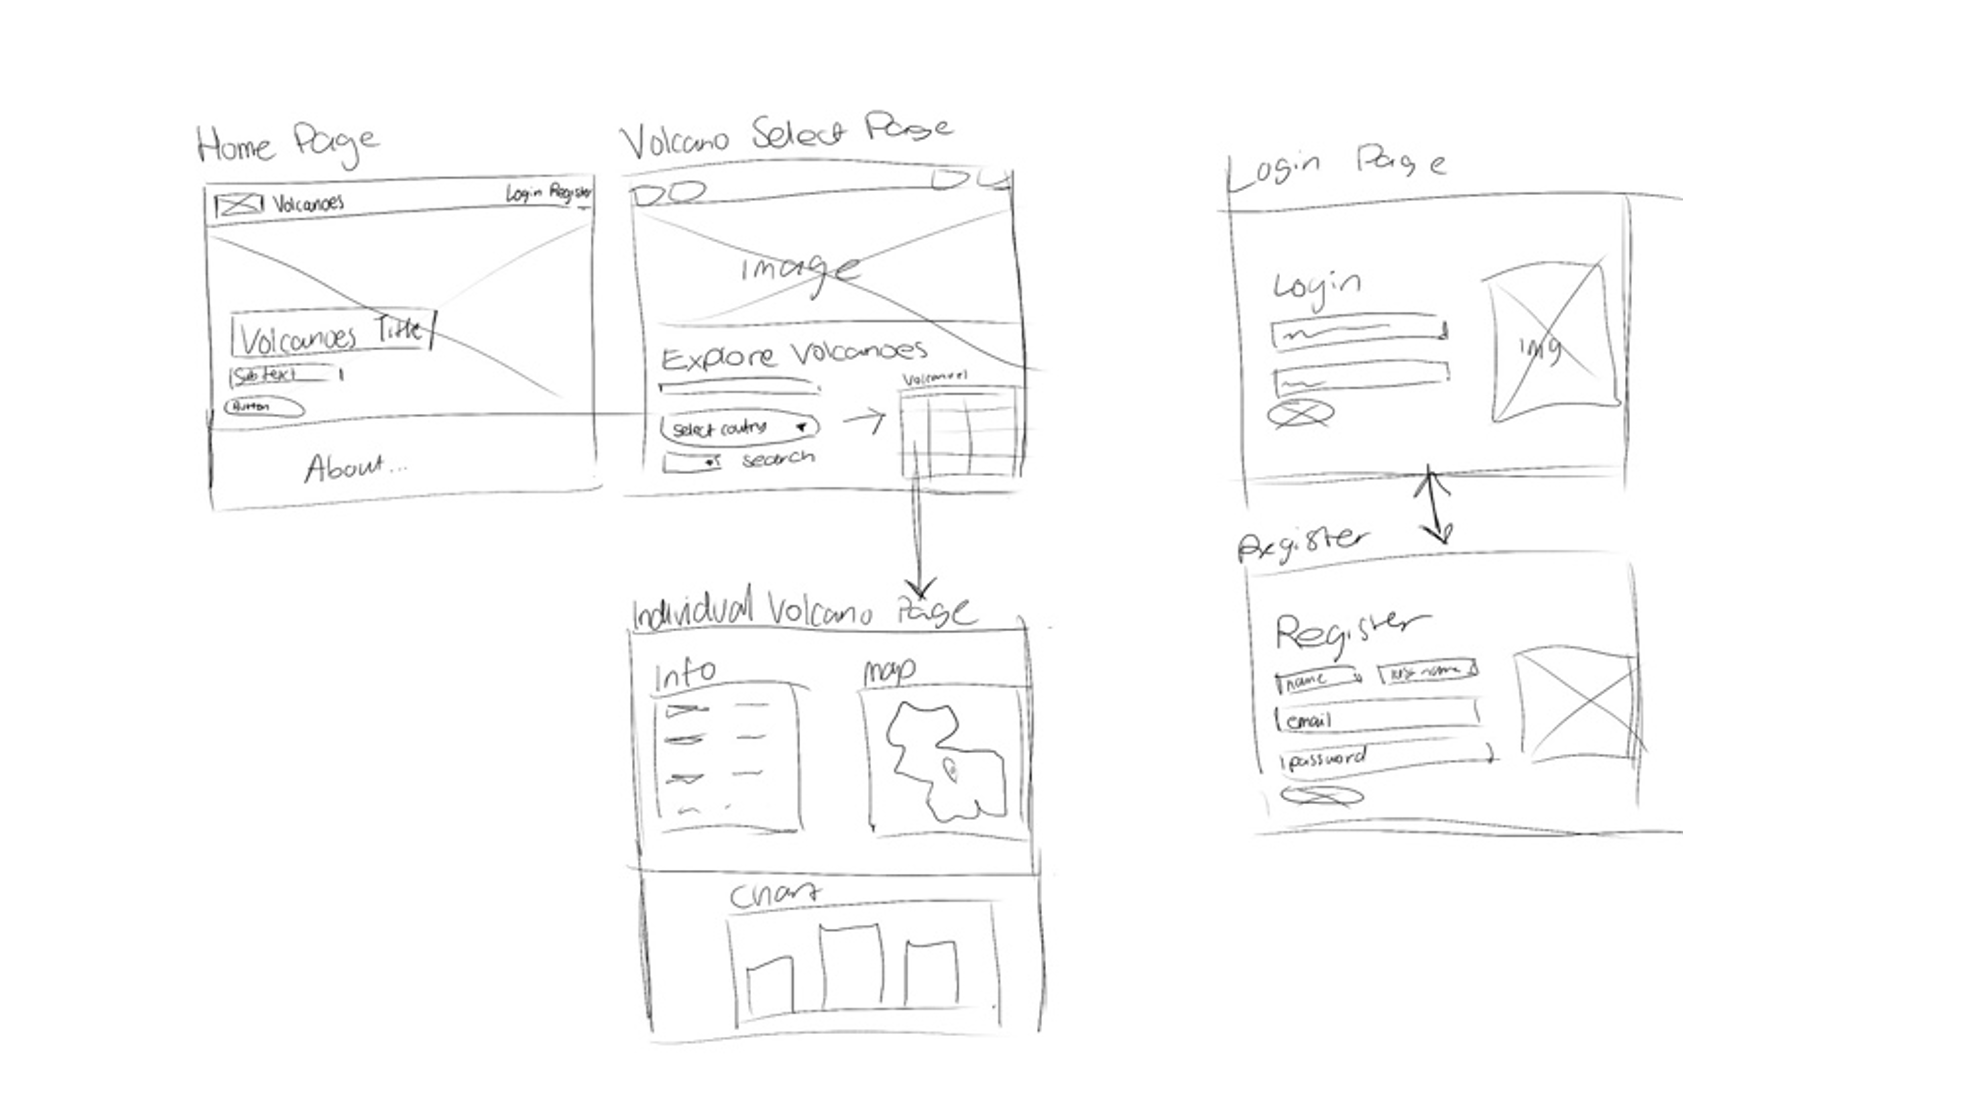 Home Page
Volcanoes
Login Register
Volcanoes Title
Subtext
Button
About...
Volcano Select Page
image
Explore Volcanoes
select coutry
search
Individual Volcano Page
Info
map
Chart
Login Page
Login
img
Register
Register
name
last name
email
password